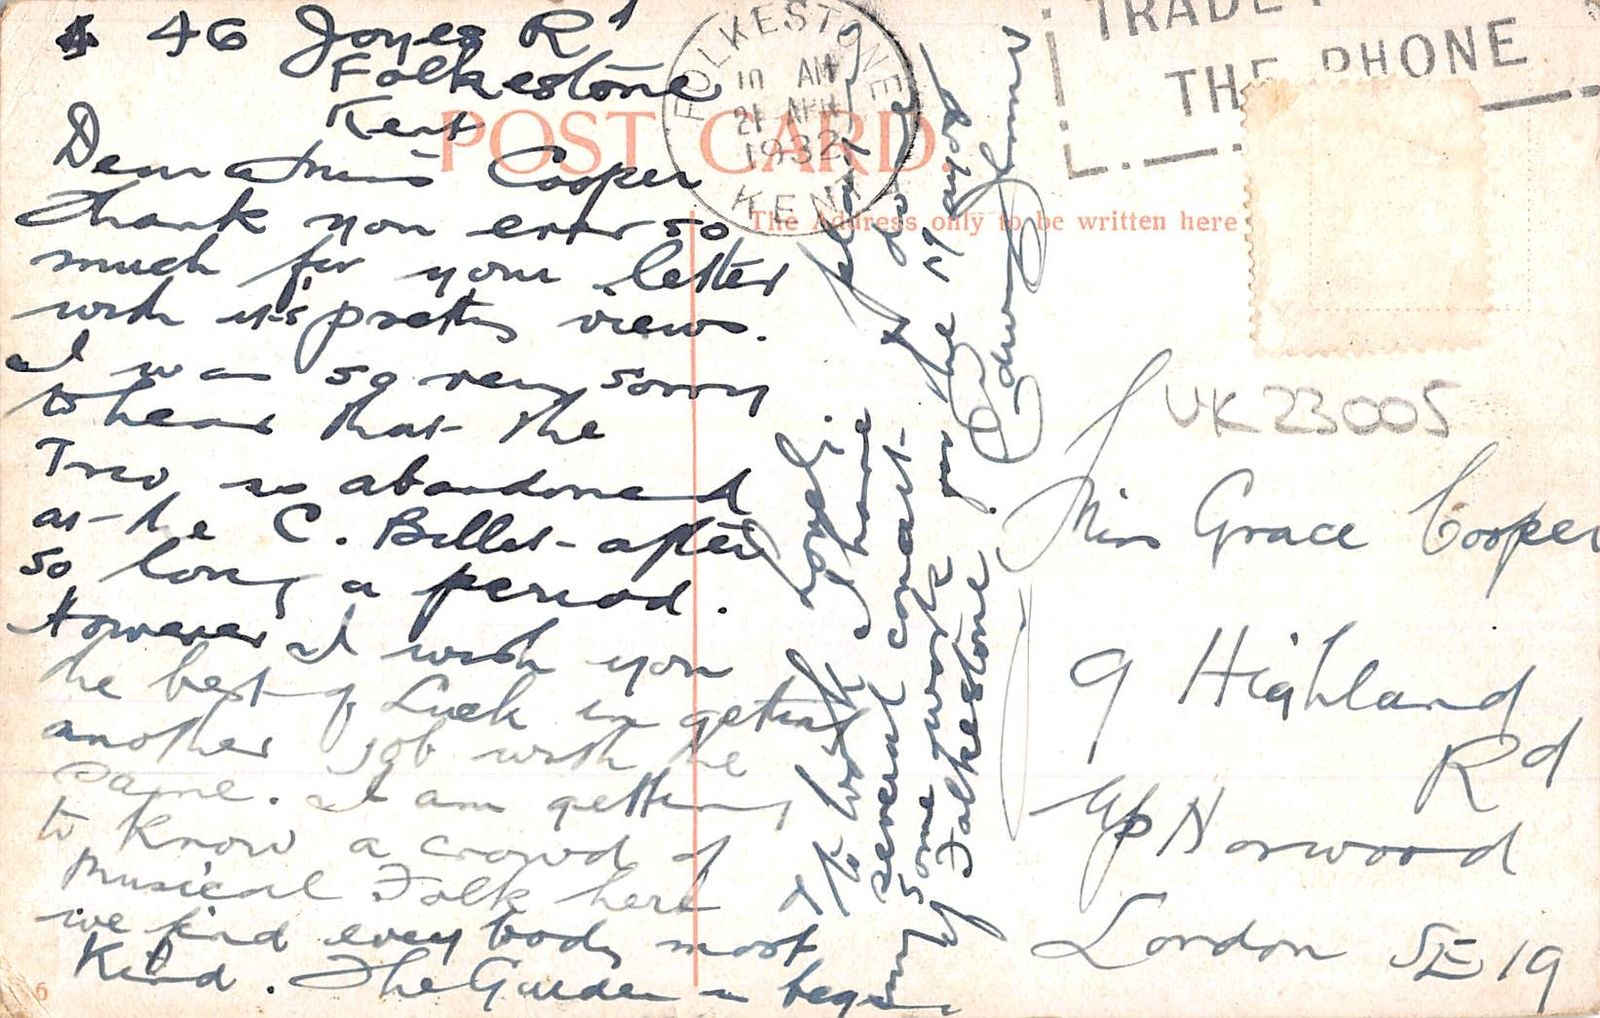 46 Joyes Rd
Folkestone
Kent
POST CARD
FOLKESTONE
10 AM
21 APR
1932
KENT
THE PHONE
The Address only to be written here
Dear Miss Cooper
Thank you ever so
much for your letter
with it's pretty views.
I was so very sorry
to hear that the
Trio is abandoned
at the C. Bullet after
so long a period.
However I wish you
the best of Luck in getting
another job with the
same. I am getting
to know a crowd of
Musical Folk here
we find every body most
Kind. The Garden is beginning
to look lovely
I have
several
some work
Folkestone.
Edwin
UK23005
Miss Grace Cooper
9 Highland
Rd
Up Norwood
London SE 19
6